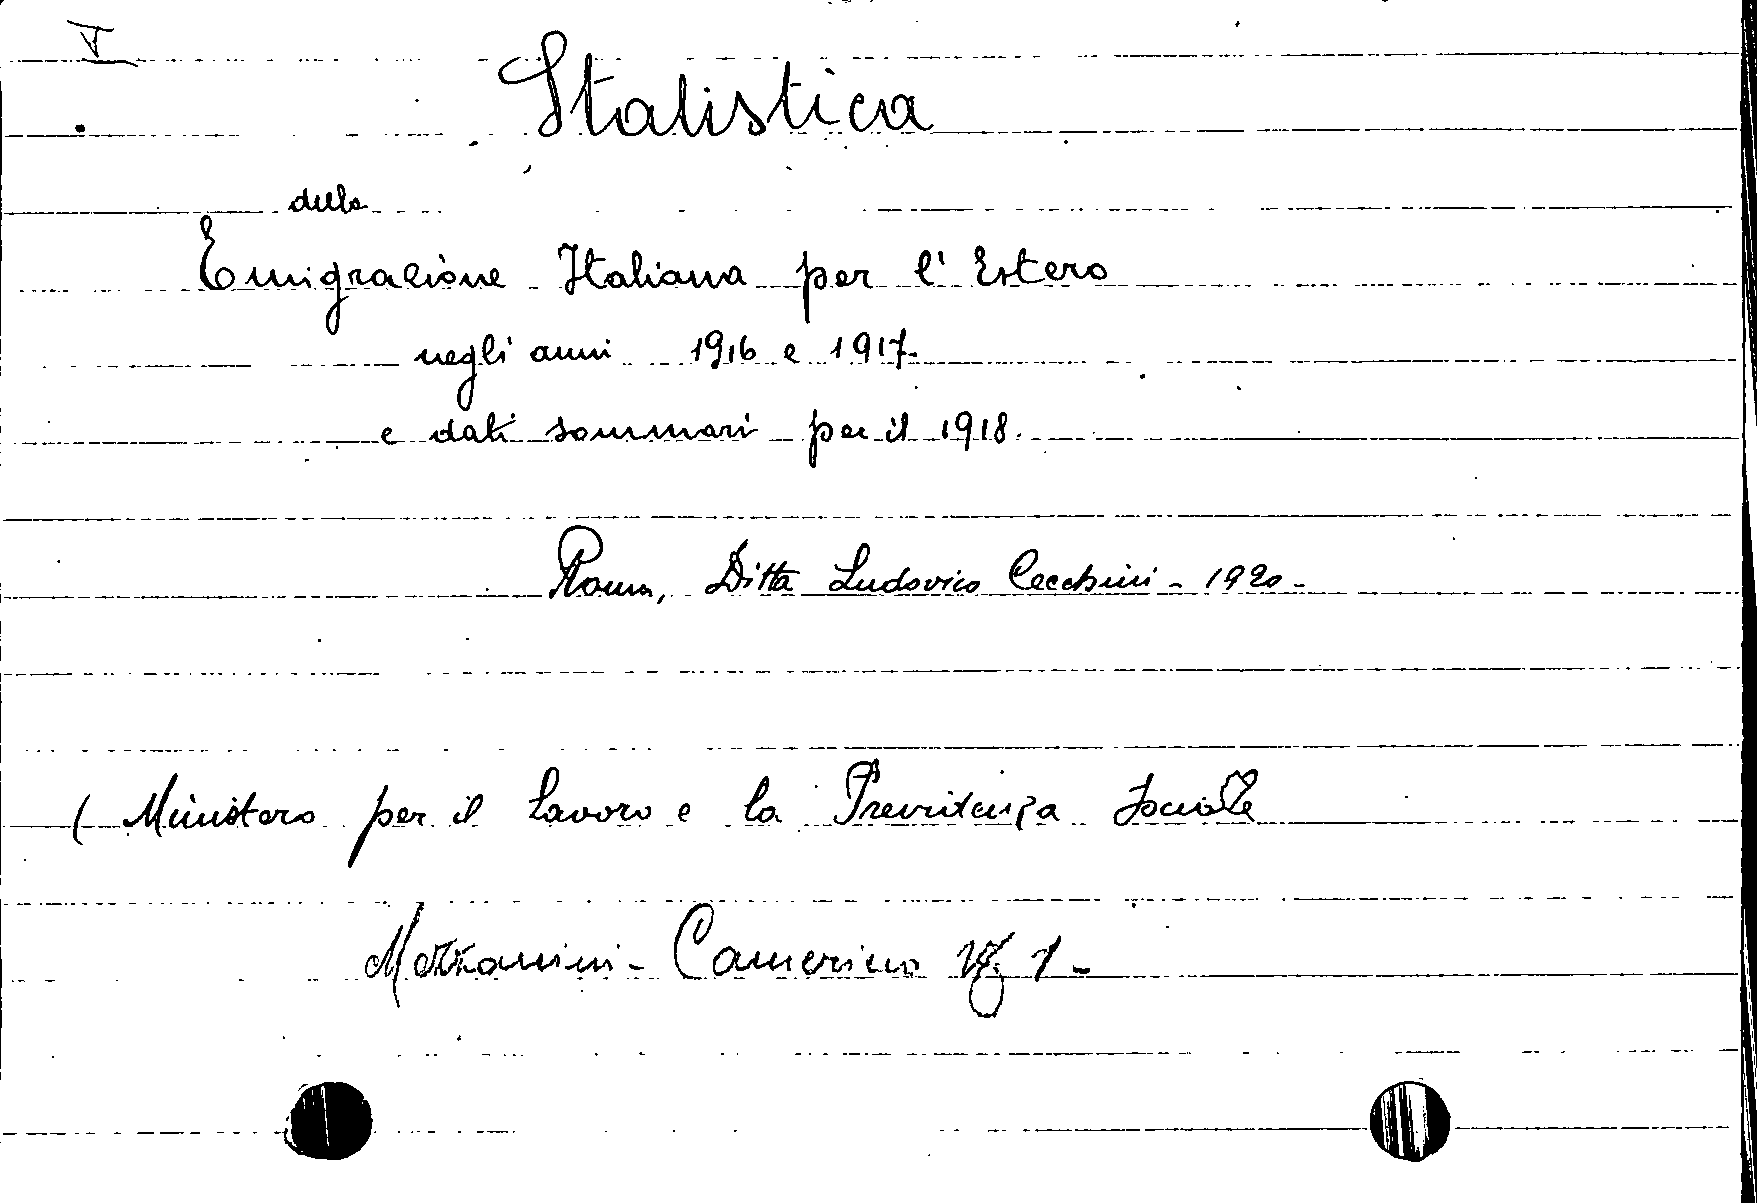 I
Statistica
della
Emigrazione Italiana per l'Estero
negli anni 1916 e 1917.
e dati sommari per il 1918.
Roma, Ditta Ludovico Cecchini - 1920 -
( Ministero per il lavoro e la Previdenza Sociale
Mezzanini - Camerino 1 -